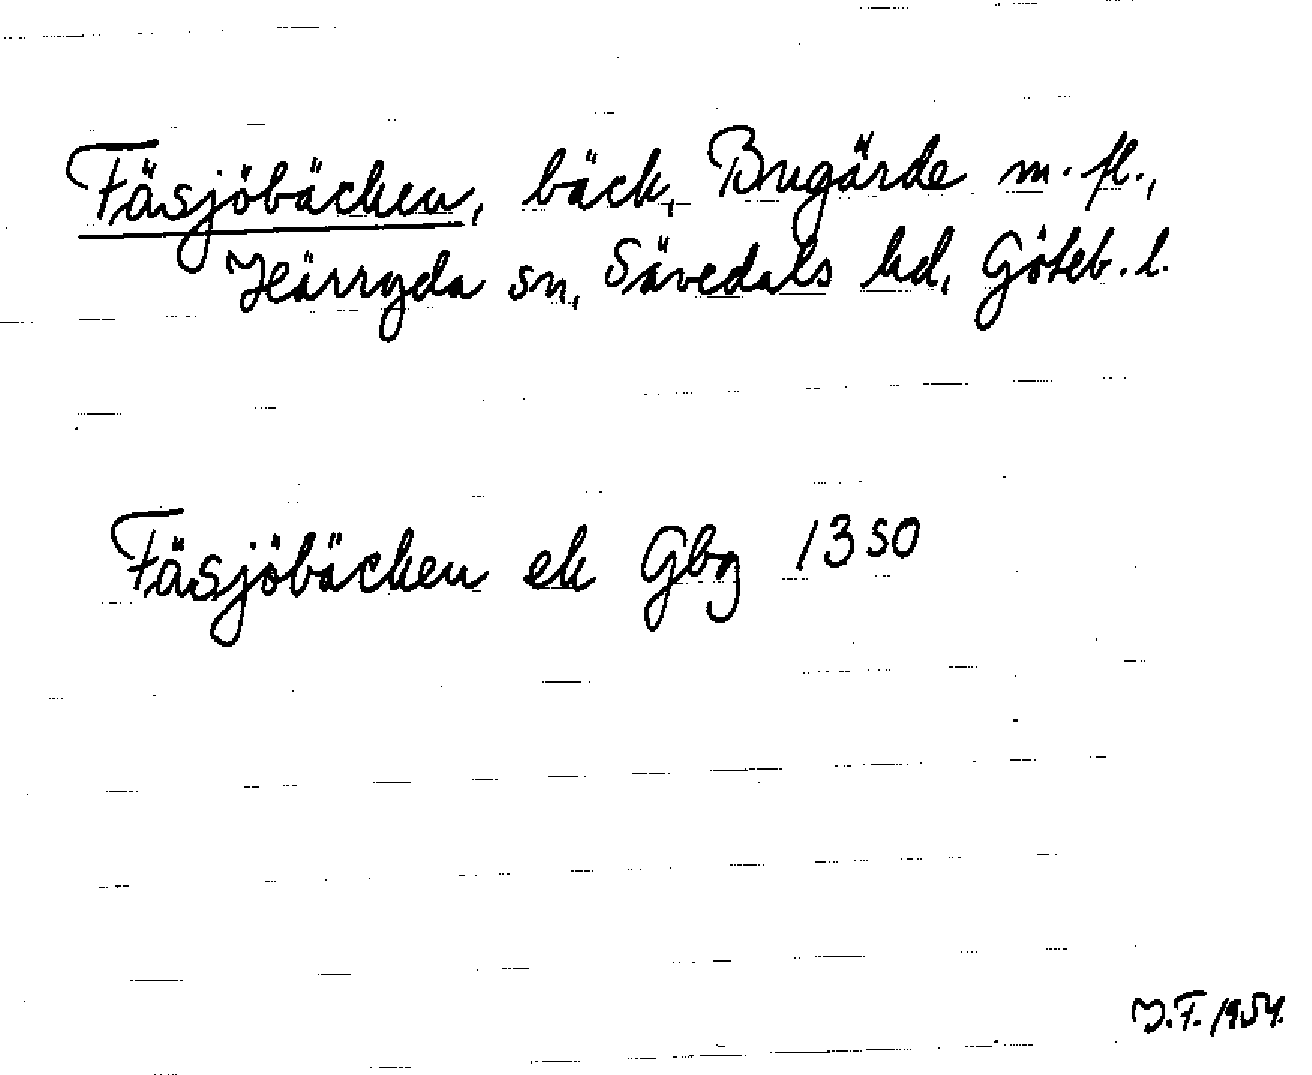 Fäsjöbäcken, bäck, Bugärde m. fl.,
Härryda sn, Sävedals hd, Göteb. l.
Fäsjöbäcken ek Gbg 1350
J.F. 1954.